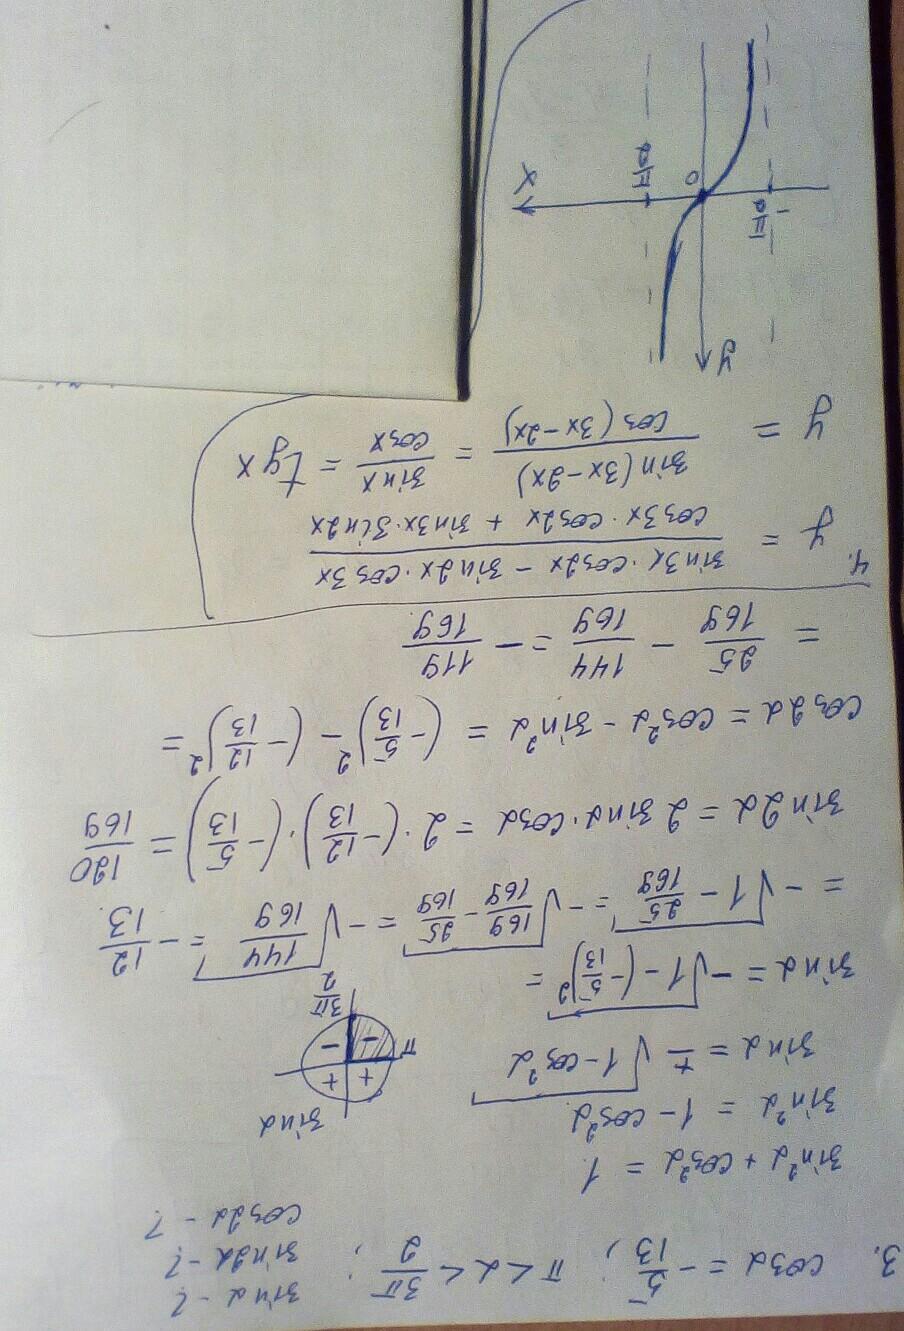 3. cosα = -5/13 ; π < α < 3π/2 ; sinα - ?
sin2α - ?
cos2α - ?
sin²α + cos²α = 1
sin²α = 1 - cos²α
sinα = ± √(1 - cos²α)
sinα
+ +
- -
π
3π/2
sinα = -√(1 - (-5/13)²) =
= -√(1 - 25/169) = -√(169/169 - 25/169) = -√(144/169) = -12/13
sin2α = 2 sinα · cosα = 2 · (-12/13) · (-5/13) = 120/169
cos2α = cos²α - sin²α = (-5/13)² - (-12/13)² =
= 25/169 - 144/169 = -119/169
4. y = (sin3x · cos2x - sin2x · cos3x)/(cos3x · cos2x + sin3x · sin2x)
y = sin(3x-2x)/cos(3x-2x) = sinx/cosx = tgx
y
-π/2
0
π/2
x